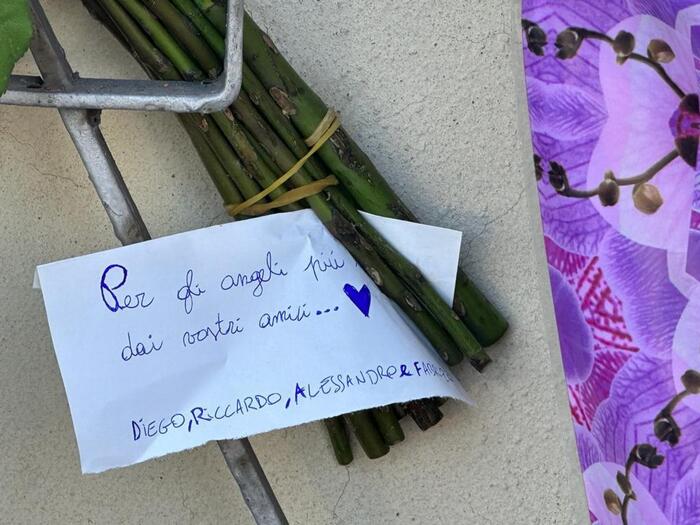 Per gli angeli più
dai vostri amici...
DIEGO, RICCARDO, ALESSANDRO e